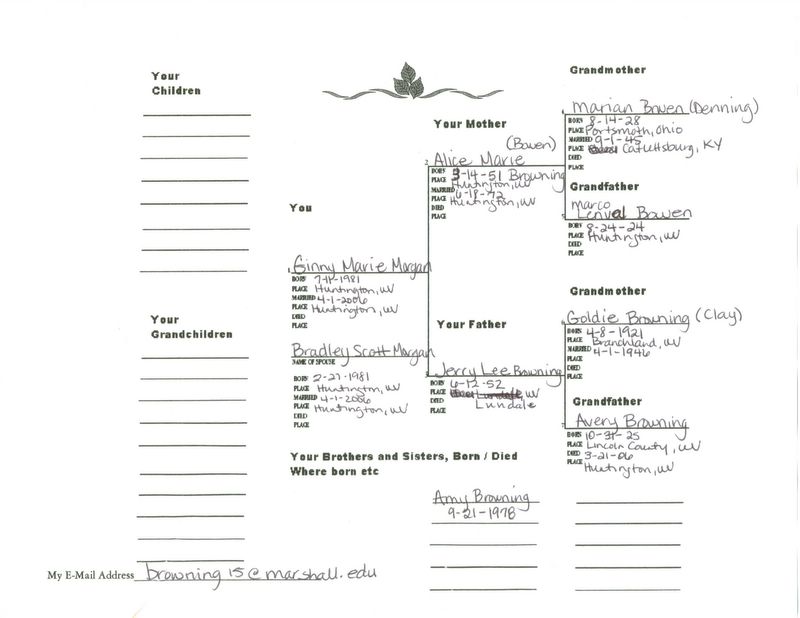 Your
Children
You
Ginny Marie Morgan
BORN 7-11-1981
PLACE Huntington, WV
MARRIED 4-1-2006
PLACE Huntington, WV
DIED
PLACE
Bradley Scott Morgan
NAME OF SPOUSE
BORN 2-27-1981
PLACE Huntington, WV
MARRIED 4-1-2006
PLACE Huntington, WV
DIED
PLACE
Your Mother
(Bowen)
2 Alice Marie
Browning
BORN 3-14-51
PLACE Huntington, WV
MARRIED 6-18-72
PLACE Huntington, WV
DIED
PLACE
Your Father
3 Jerry Lee Browning
BORN 6-12-52
PLACE WV
Lundale
DIED
PLACE
Grandmother
Marian Bowen (Denning)
BORN 8-14-28
PLACE Portsmoth, Ohio
MARRIED 9-1-45
PLACE Catlettsburg, KY
DIED
PLACE
Grandfather
Marco
5 Lenval Bowen
BORN 8-24-24
PLACE Huntington, WV
DIED
PLACE
Grandmother
6 Goldie Browning (Clay)
BORN 4-8-1921
PLACE Branchland, WV
MARRIED 4-1-1946
PLACE
DIED
PLACE
Grandfather
7 Avery Browning
BORN 10-31-25
PLACE Lincoln County, WV
DIED 3-21-06
PLACE Huntington, WV
Your
Grandchildren
Your Brothers and Sisters, Born / Died
Where born etc
Amy Browning
9-21-1978
My E-Mail Address browning15@marshall.edu